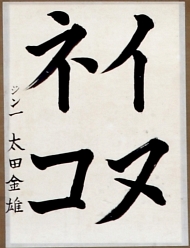 イヌ
ネコ
ジン一 太田金雄